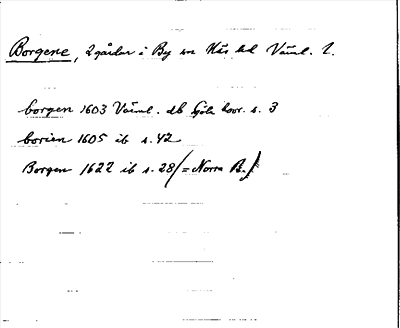 Borgene, 2 gårdar i By sn Näs hd Värml. l.
borgen 1603 Värml. db s. 3
borien 1605 ib s. 42
Borgen 1622 ib s. 28 (= Norra B.)